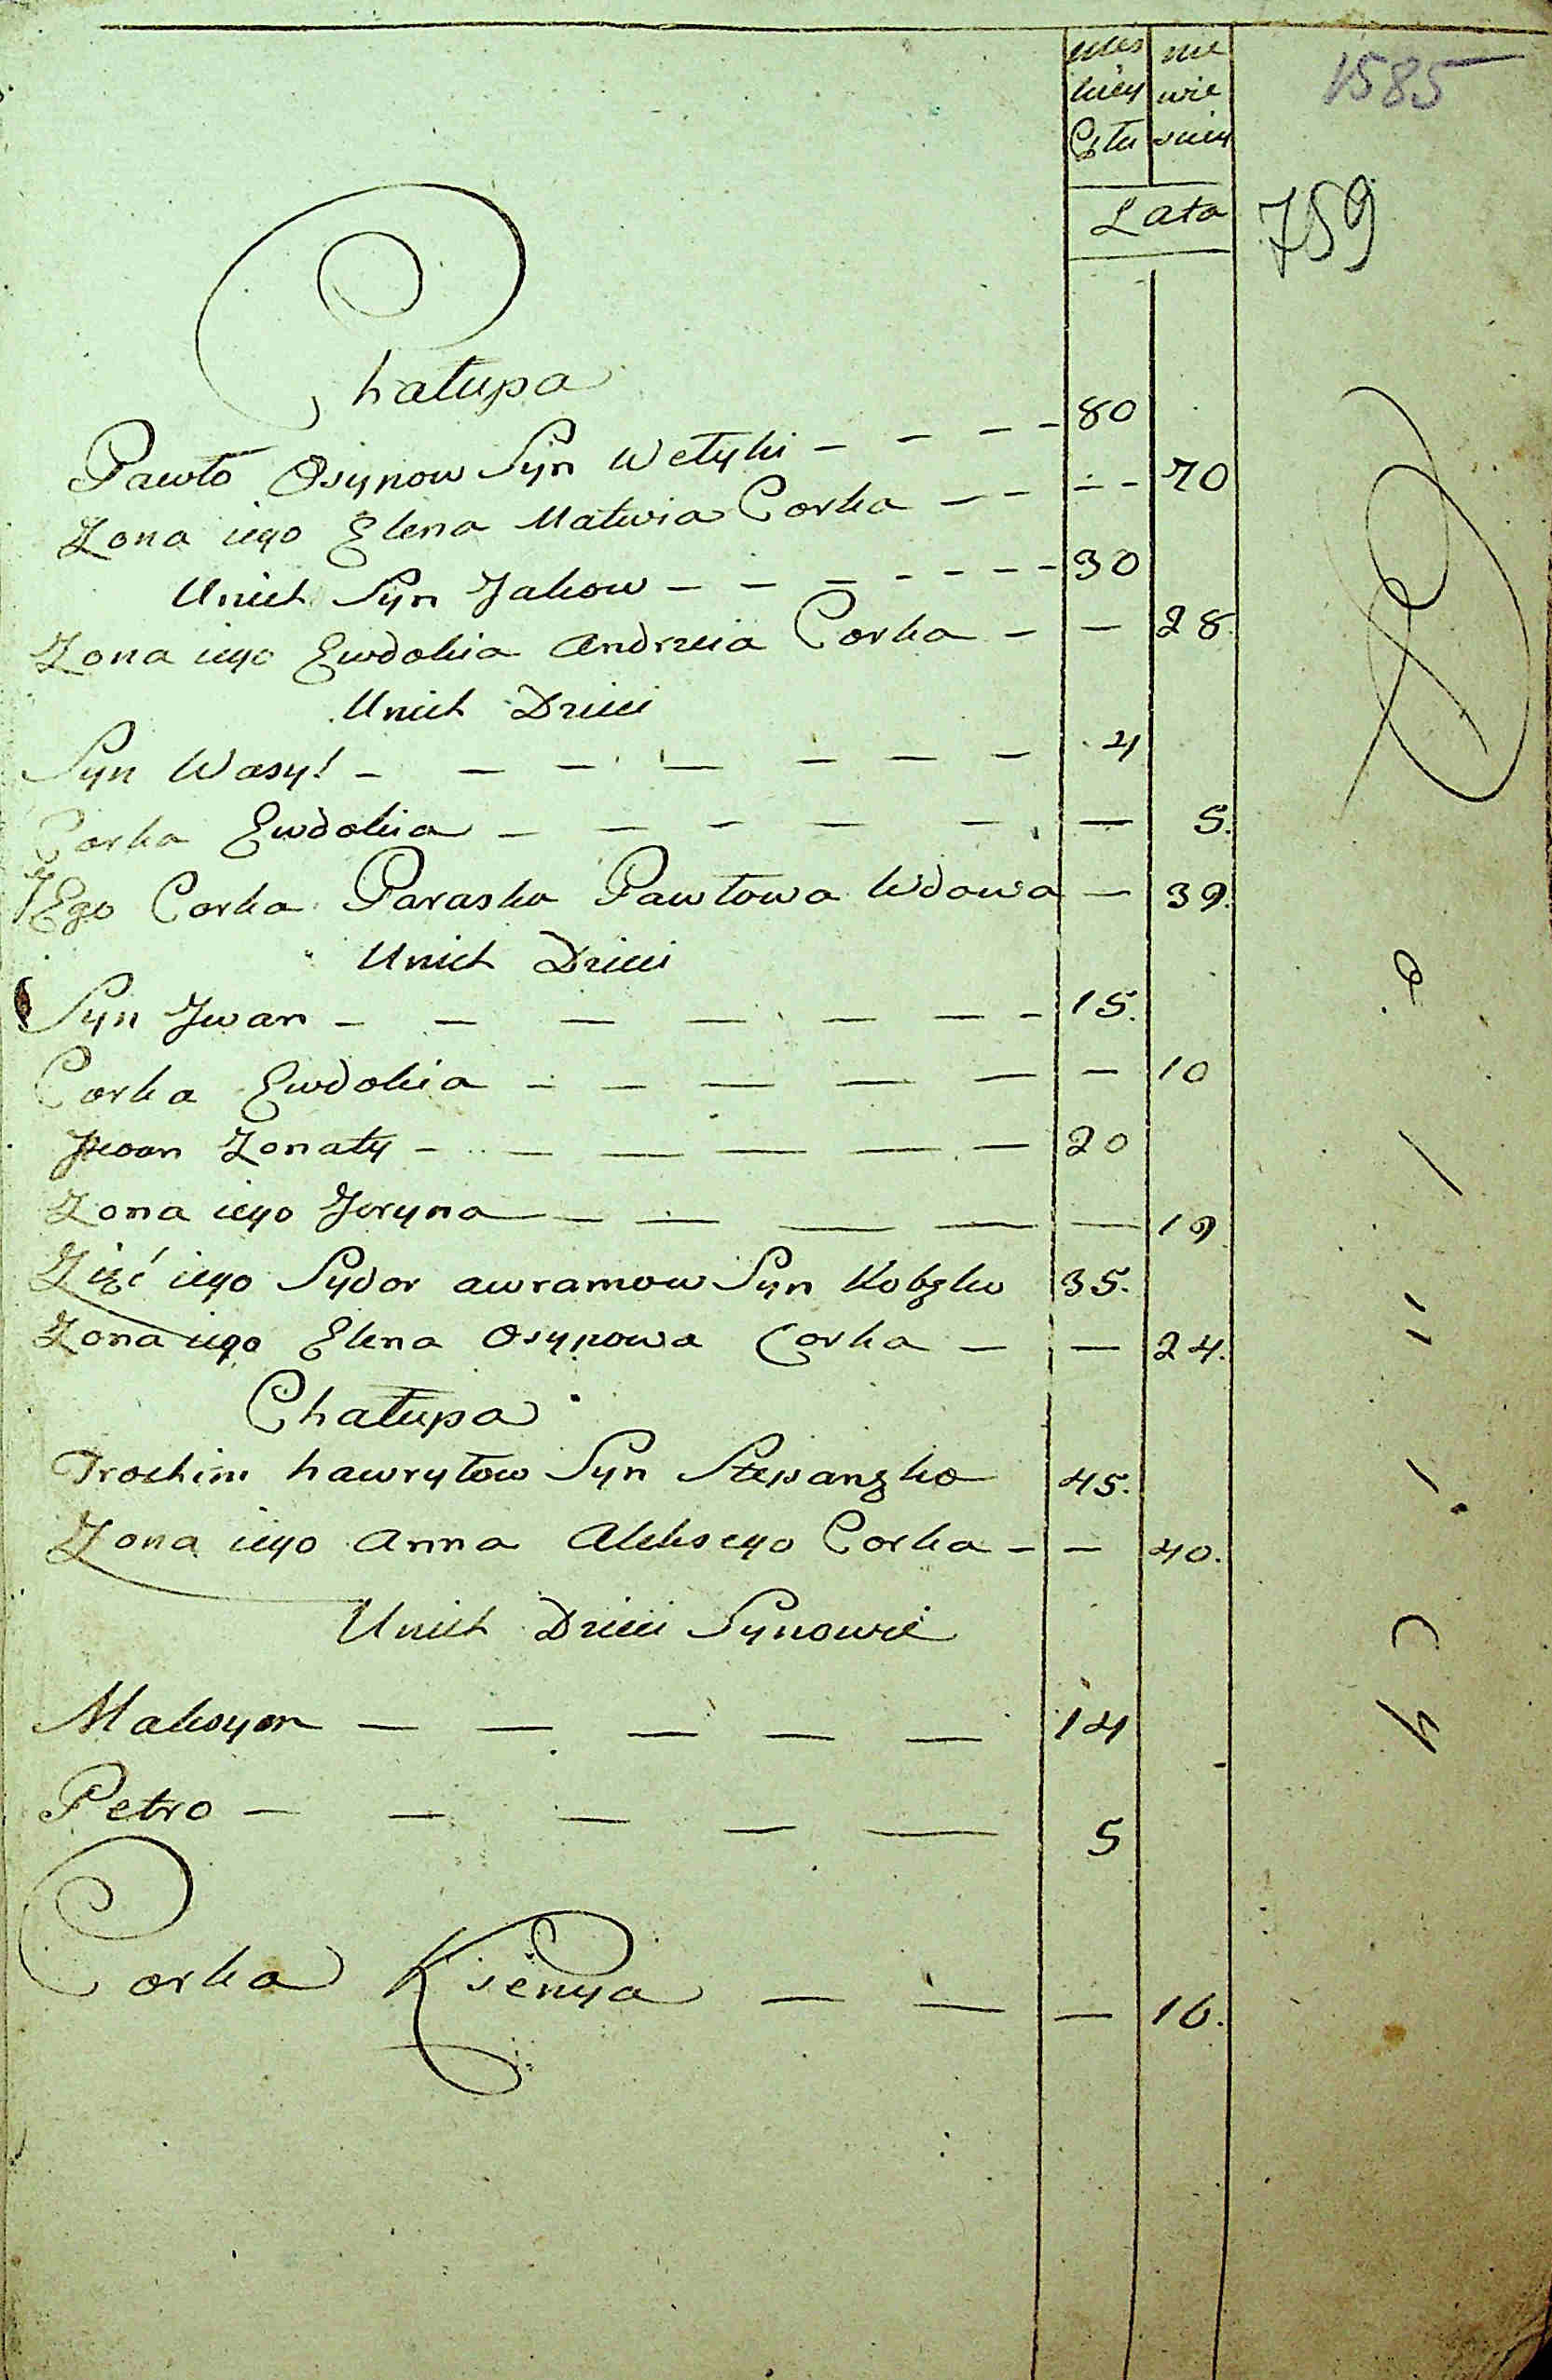 mes nie
kiey wie
Cstu sciey
1585
Lata
759
Chałupa
Pawło Osypow Syn Wełyki - - - - 80
Zona iego Elena Matwia Corka - - - - 70
Unich Syn Jakow - - - - - - - 30
Zona iego Ewdokia Andrzeia Corka - - 28.
Unich Dzieci
Syn Wasyl - - - - - - - 4
Corka Ewdokia - - - - - - 5.
JEgo Corka Paraska Pawłowa Wdowa - 39.
Unich Dzieci
Syn Jwan - - - - - - - 15.
Corka Ewdokia - - - - - - 10
Jwan Zonaty - - - - - - 20
Zona iego Jwryna - - - - - 19
Zięć iego Sydor awramow Syn Kobzko 35.
Zona iego Elena Osypowa Corka - - 24.
Chałupa
Trochim hawryłow Syn Stepanzko 45.
Zona iego Anna Alekseyo Corka - - 40.
Unich Dzieci Synowie
Maksym - - - - - 14
Petro - - - - - 5
Corka Ksenya - - - 16.